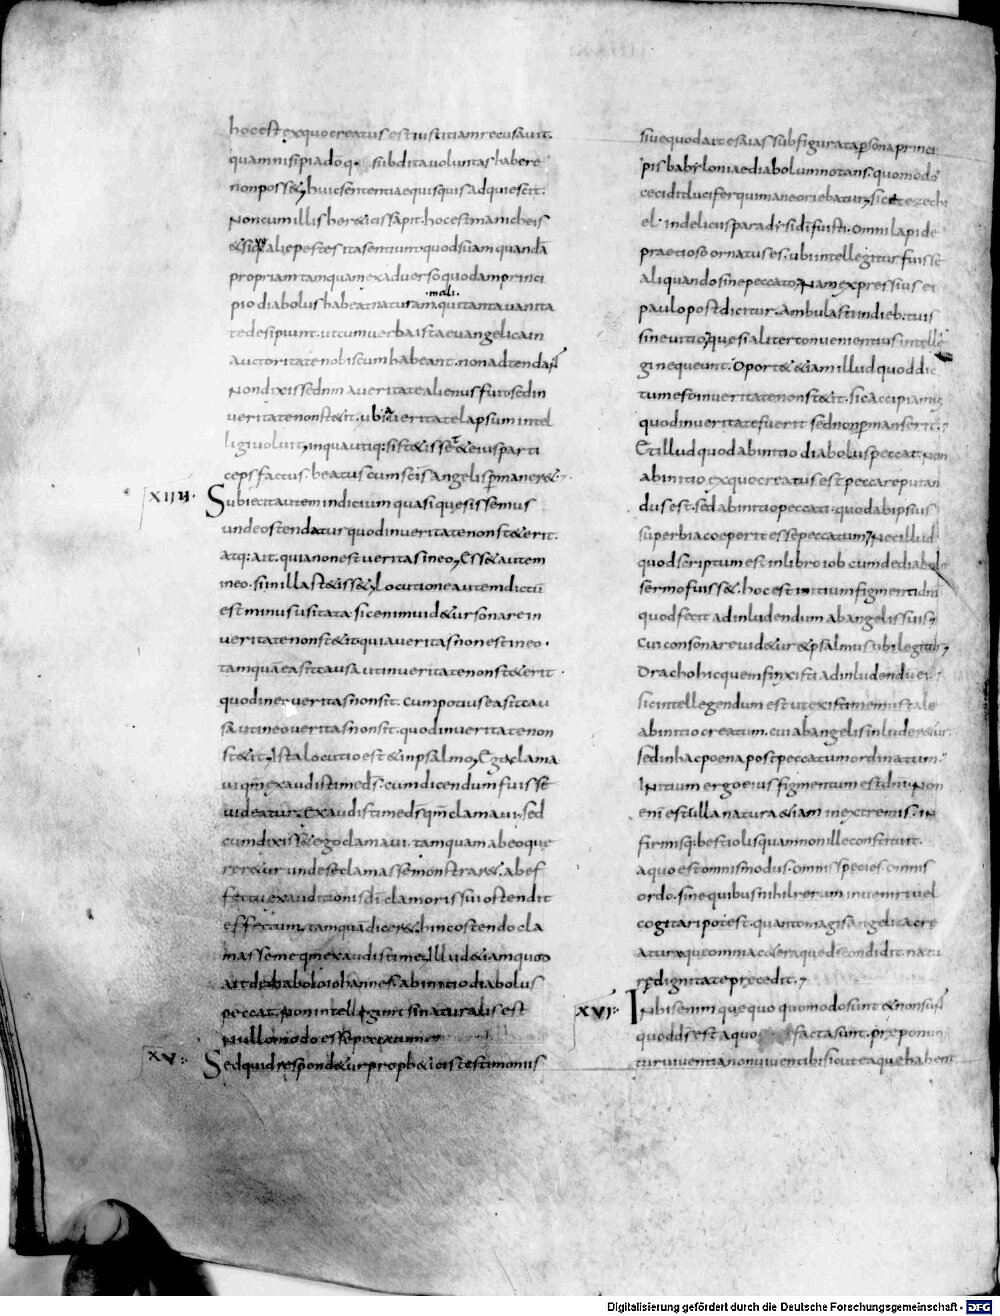 hocest exquocreatus est iustitiam recusauit.
quam nisi pia do q. subdita uoluntas habere
non poss&, huic sententiae quisquis adquiescit.
Non cum illis her&icis sapit. hoc est manicheis
& siquae aliae pestes ita sentiunt quod suam quandā
propriam tamquam ex aduerso quodam princi
pio diabolus habeat naturam mali. qui tanta uanita
te desipiunt. ut cum uerba ista euangelica in
auctoritate nobiscum habeant. non adtendant
Non dixisse dnm a ueritate alienus fuit sed in
ueritate non st&it. ubi a ueritate lapsum intel
ligi uoluit, in qua utiq: si st&iss& eius parti
ceps factus. beatus cum scis angelis pman er&.
XIIII. Subiecit autem indicium quasi quesissemus
unde ostendatur quod in ueritate non st&erit.
atq: ait. quia non est ueritas in eo, Ess& autem
in eo. si in illa st&iss&, Locutione autem dictū
est minus usitata. sic enim uid&ur sonare in
ueritate non st&it quia ueritas non est in eo.
tamquā ea sit causa ut in ueritate non st&erit
quod in eo ueritas non sit. cum potius ea sit cau
sa ut in eo ueritas non sit. quod in ueritate non
st&it, Ista locutio est & in psalmo, Ego clama
ui qm̄ exaudisti me ds. cum dicendum fuisse
uideatur. exaudisti me ds qm̄ clamaui, sed
cum dixiss& ego clamaui. tamquam ab eo que
rer&ur unde se clamasse monstrar&. ab ef
fectu exauditionis di clamoris sui ostendit
effectum, tamquā dicer& hinc ostendo cla
masse me qm̄ exaudisti me, Illud &iam quod
ait de diabolo iohannes. ab initio diabolus
peccat. Non intellegunt si naturalis est
Nullo modo esse peccatum
XV: Sed quid respond&ur proph&icis testimoniis
siue quod ait esaias sub figurata psona princi
pis babyloniae diabolum notans. quomodo
cecidit lucifer qui mane oriebatur, siue ezechi
el. in deliciis paradisi di fuisti. omni lapide
praetioso ornatus es. ubi intellegitur fuisse
aliquando sine peccato, Nam expressius ei
paulo post dicitur. Ambulasti in dieb: tuis
sine uitio, que si aliter conuenientius intelle
gi nequeunt. Oport& &iam illud quod dic
tum est in ueritate non st&it. sic accipiamus
quod in ueritate fuerit sed non pmanserit.
Et illud quod ab initio diabolus peccat. non
ab initio ex quo creatus est peccare putan
dus est. sed ab initio peccati. quod ab ipsius
superbia coeperit esse peccatum, Nec illud
quod scriptum est in libro iob cum de diabolo
sermo fuiss&. hoc est initium figmenti dni
quod fecit ad inludendum ab angelis suis,
Cui consonare uid&ur & psalmus ubi legitur,
Draco hic quem finxisti ad inludendū ei.
sic intellegendum est ut existimemus tale
ab initio creatum. cui ab angelis inluder&ur.
sed in hac poena post peccatum ordinatum.
Initium ergo eius figmentum est dni. Non
eni est ulla natura &iam in extremis. in
firmisq: bestiolis quam non ille constituit.
a quo est omnis modus. omnis species. omnis
ordo. sine quibus nihil rerum inueniri uel
cogitari potest. quanto magis angelica cre
atura que omnia c&era que ds condidit. natu
rę dignitate precedit.
XVI: In his enim que quoquomodo sunt & non sunt
quod ds est a quo facta sunt. preponun
tur uiuentia non uiuentibus. sicut ea que habent